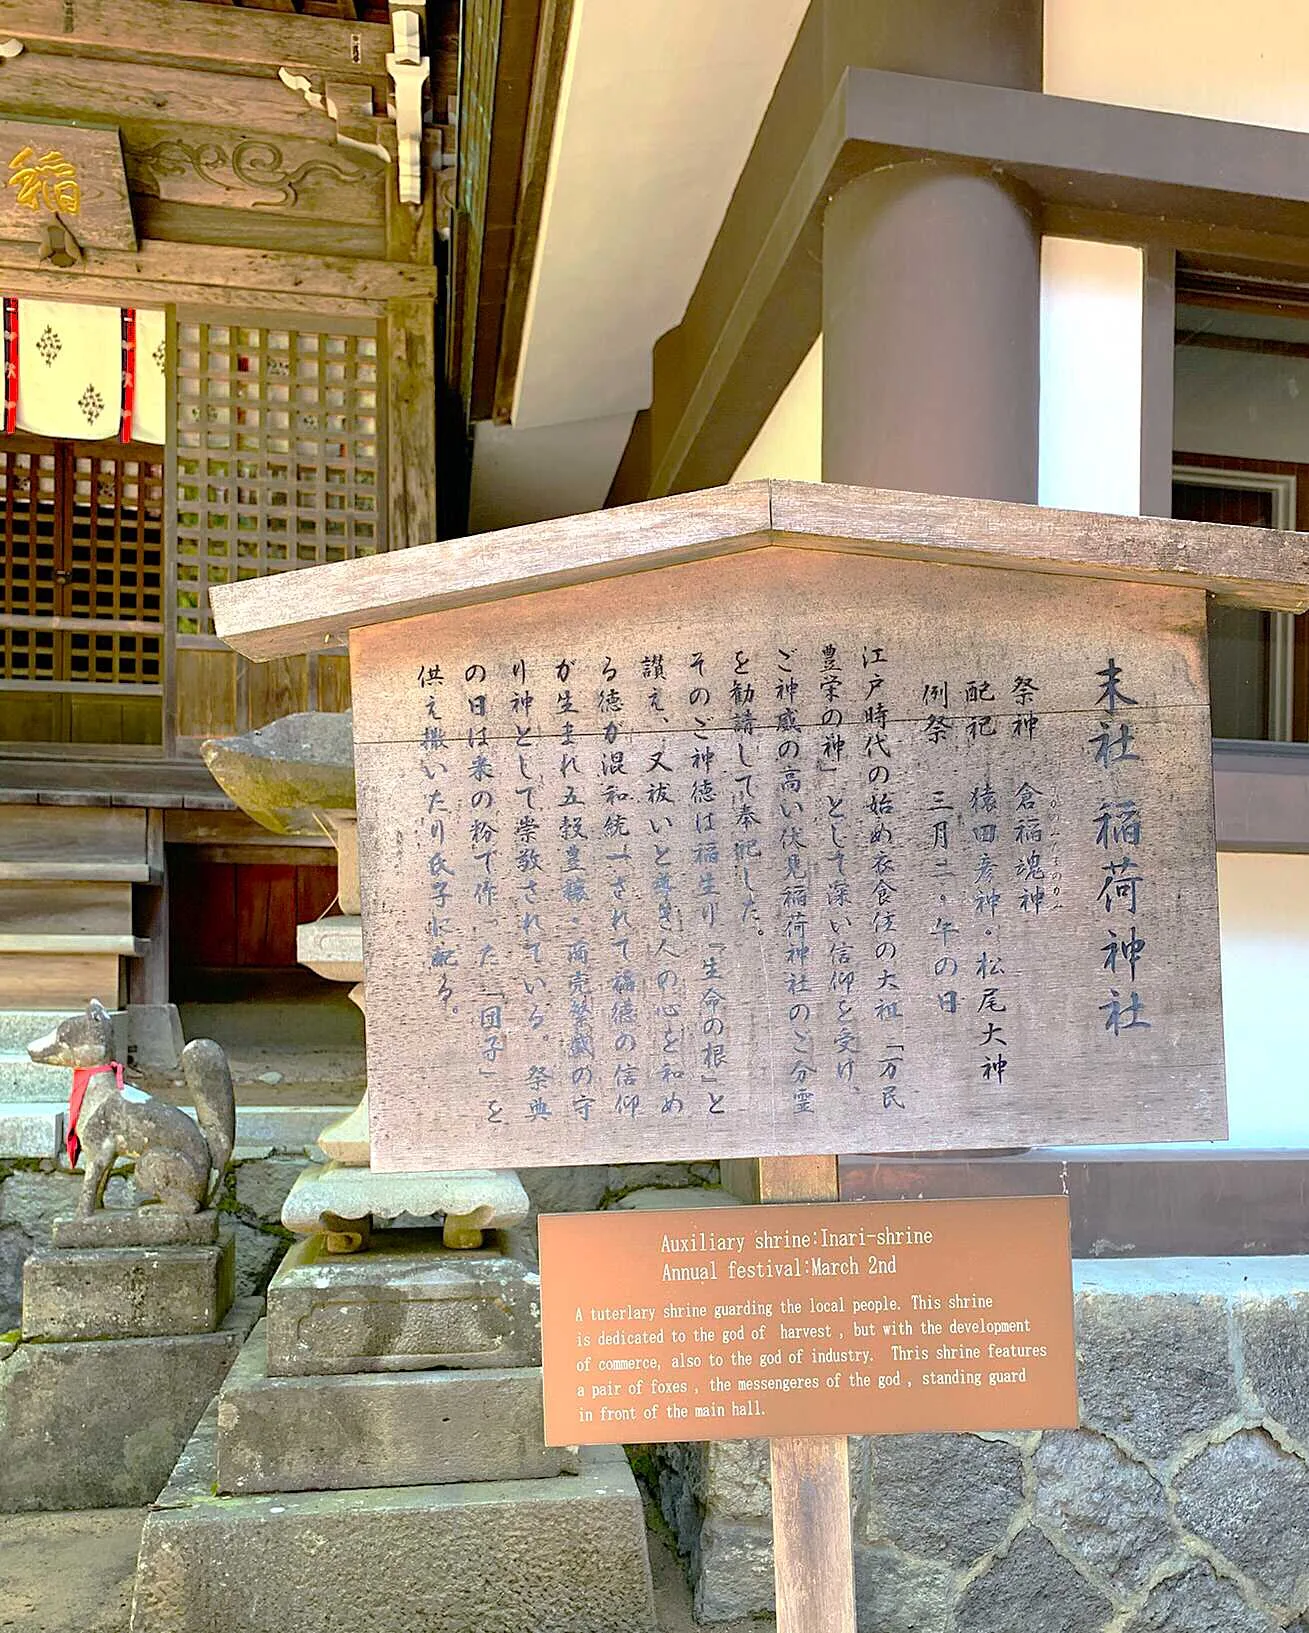 稲
末社 稲荷神社
祭神 倉稲魂神
配祀 猿田彦神・松尾大神
例祭 三月二・午の日
江戸時代の始め衣食住の大祖「万民
豊栄の神」として深い信仰を受け、
ご神威の高い伏見稲荷神社のご分霊
を勧請して奉祀した。
そのご神徳は稲生り『生命の根』と
讃え、又祓いと尊き人の心を和め
る徳が混和統一されて稲徳の信仰
が生まれ五穀豊穣・商売繁盛の守
り神として崇敬されている。祭典
の日は米の粉で作った「団子」を
供え撒いたり氏子に配る。
Auxiliary shrine:Inari-shrine
Annual festival:March 2nd
A tuterlary shrine guarding the local people. This shrine
is dedicated to the god of harvest , but with the development
of commerce, also to the god of industry. Thris shrine features
a pair of foxes , the messengeres of the god , standing guard
in front of the main hall.